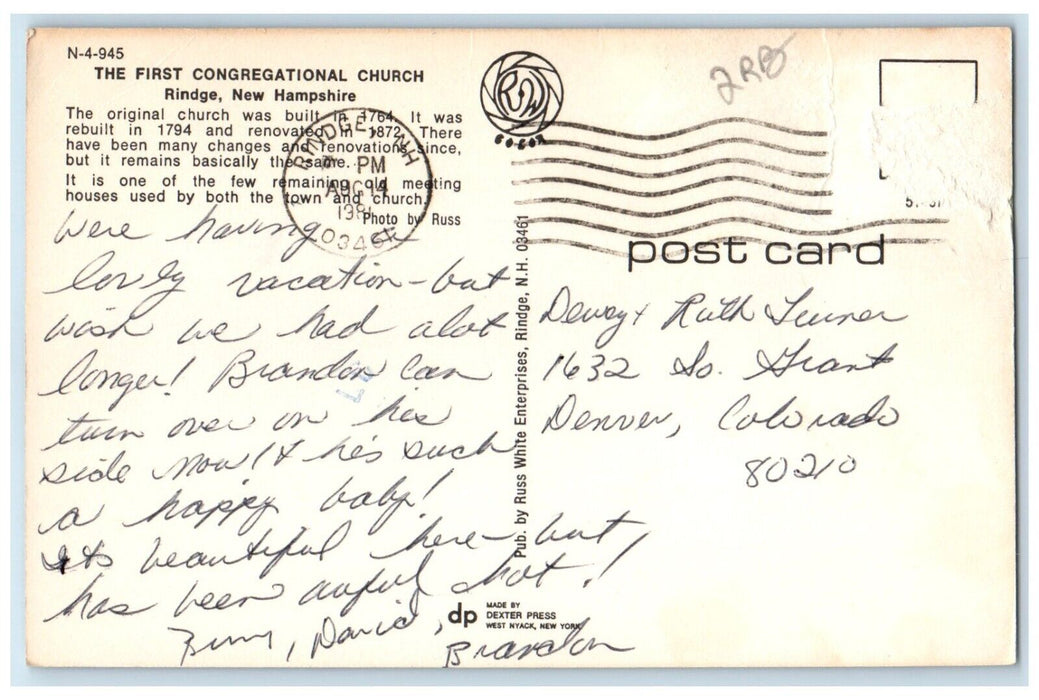 N-4-945
THE FIRST CONGREGATIONAL CHURCH
Rindge, New Hampshire
The original church was built in 1764. It was
rebuilt in 1794 and renovated in 1872. There
have been many changes and renovations since,
but it remains basically the same.
It is one of the few remaining old meeting
houses used by both the town and church.
Photo by Russ
RINDGE, NH
PM
AUG 14
03461
RW
COLOR
2RB
post card
were having a
lovely vacation - but
wish we had alot
longer! Brandon can
turn over on his
side now! & he's such
a happy baby!
Its beautiful here - but,
has been awful hot!
David,
Brandon
Pub. by Russ White Enterprises, Rindge, N.H. 03461
Dewey & Ruth Turner
1632 So. Grant
Denver, Colorado
80210
dp
MADE BY
DEXTER PRESS
WEST NYACK, NEW YORK